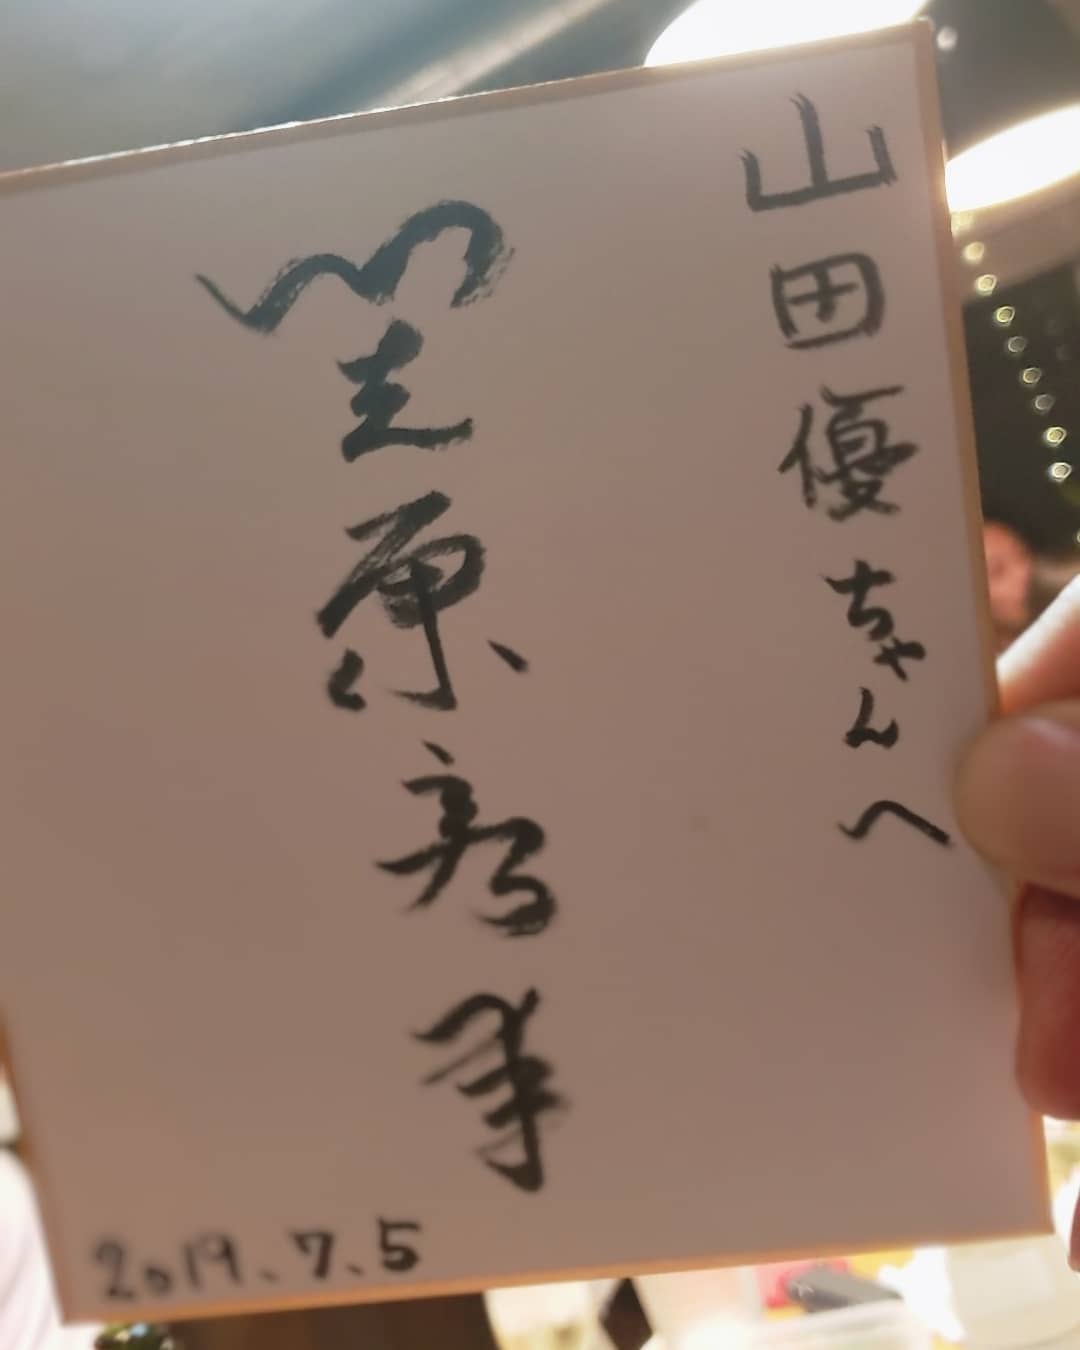 山田優ちゃんへ
笠原
2019.7.5